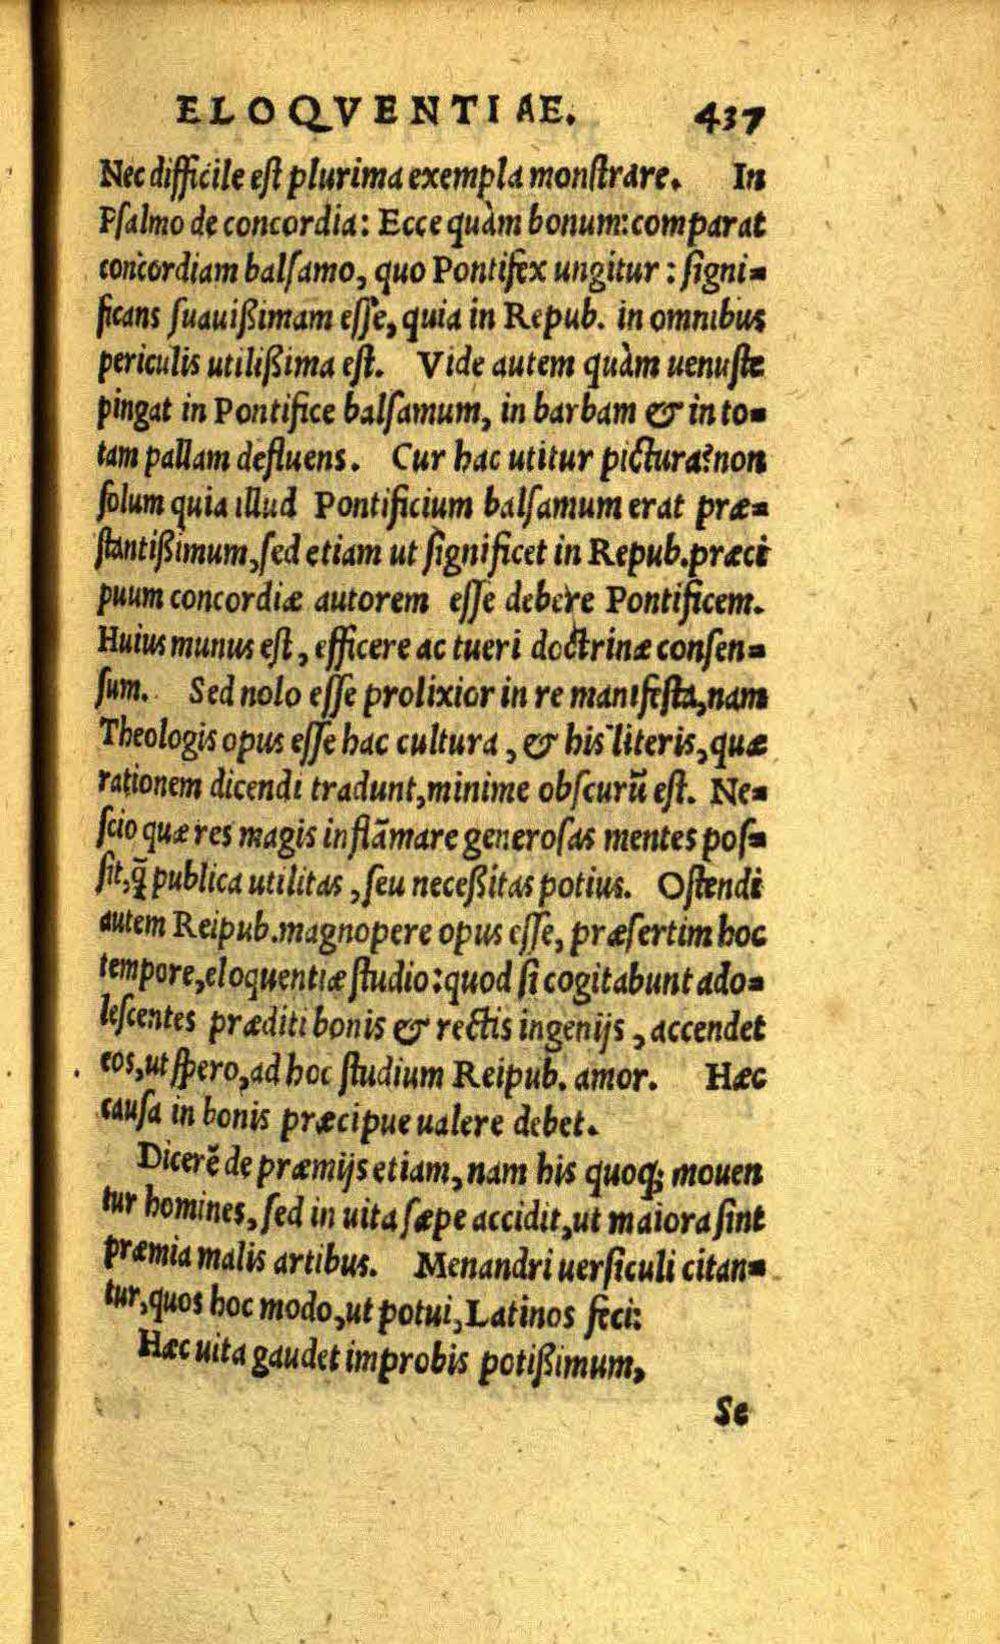 ELOQVENTIAE. 437
Nec difficile eſt plurima exempla monſtrare. In
Pſalmo de concordia: Ecce quàm bonum: comparat
concordiam balſamo, quo Pontifex ungitur: ſigni=
ficans ſuauißimam eſſe, quia in Repub. in omnibus
periculis utilißima eſt. Vide autem quàm uenuſte
pingat in Pontifice balſamum, in barbam & in to=
tam pallam defluens. Cur hac utitur pictura? non
ſolum quia illud Pontificium balſamum erat præ=
ſtantißimum, ſed etiam ut ſignificet in Repub. præci
puum concordiæ autorem eſſe debere Pontificem.
Huius munus eſt, efficere ac tueri doctrinæ conſen=
ſum. Sed nolo eſſe prolixior in re manifeſta, nam
Theologis opus eſſe hac cultura, & his literis, quæ
rationem dicendi tradunt, minime obſcurũ eſt. Ne=
ſcio quæ res magis inflãmare generoſas mentes poſ=
ſit, q̃ publica utilitas, ſeu neceßitas potius. Oſtendi
autem Reipub. magnopere opus eſſe, præſertim hoc
tempore, eloquentiæ ſtudio: quod ſi cogitabunt ado=
leſcentes præditi bonis & rectis ingenijs, accendet
eos, ut ſpero, ad hoc ſtudium Reipub. amor. Hæc
cauſa in bonis præcipue ualere debet.
Dicerẽ de præmijs etiam, nam his quoq; mouen
tur homines, ſed in uita ſæpe accidit, ut maiora ſint
præmia malis artibus. Menandri uerſiculi citan=
tur, quos hoc modo, ut potui, Latinos feci:
Hæc uita gaudet improbis potißimum,
Se